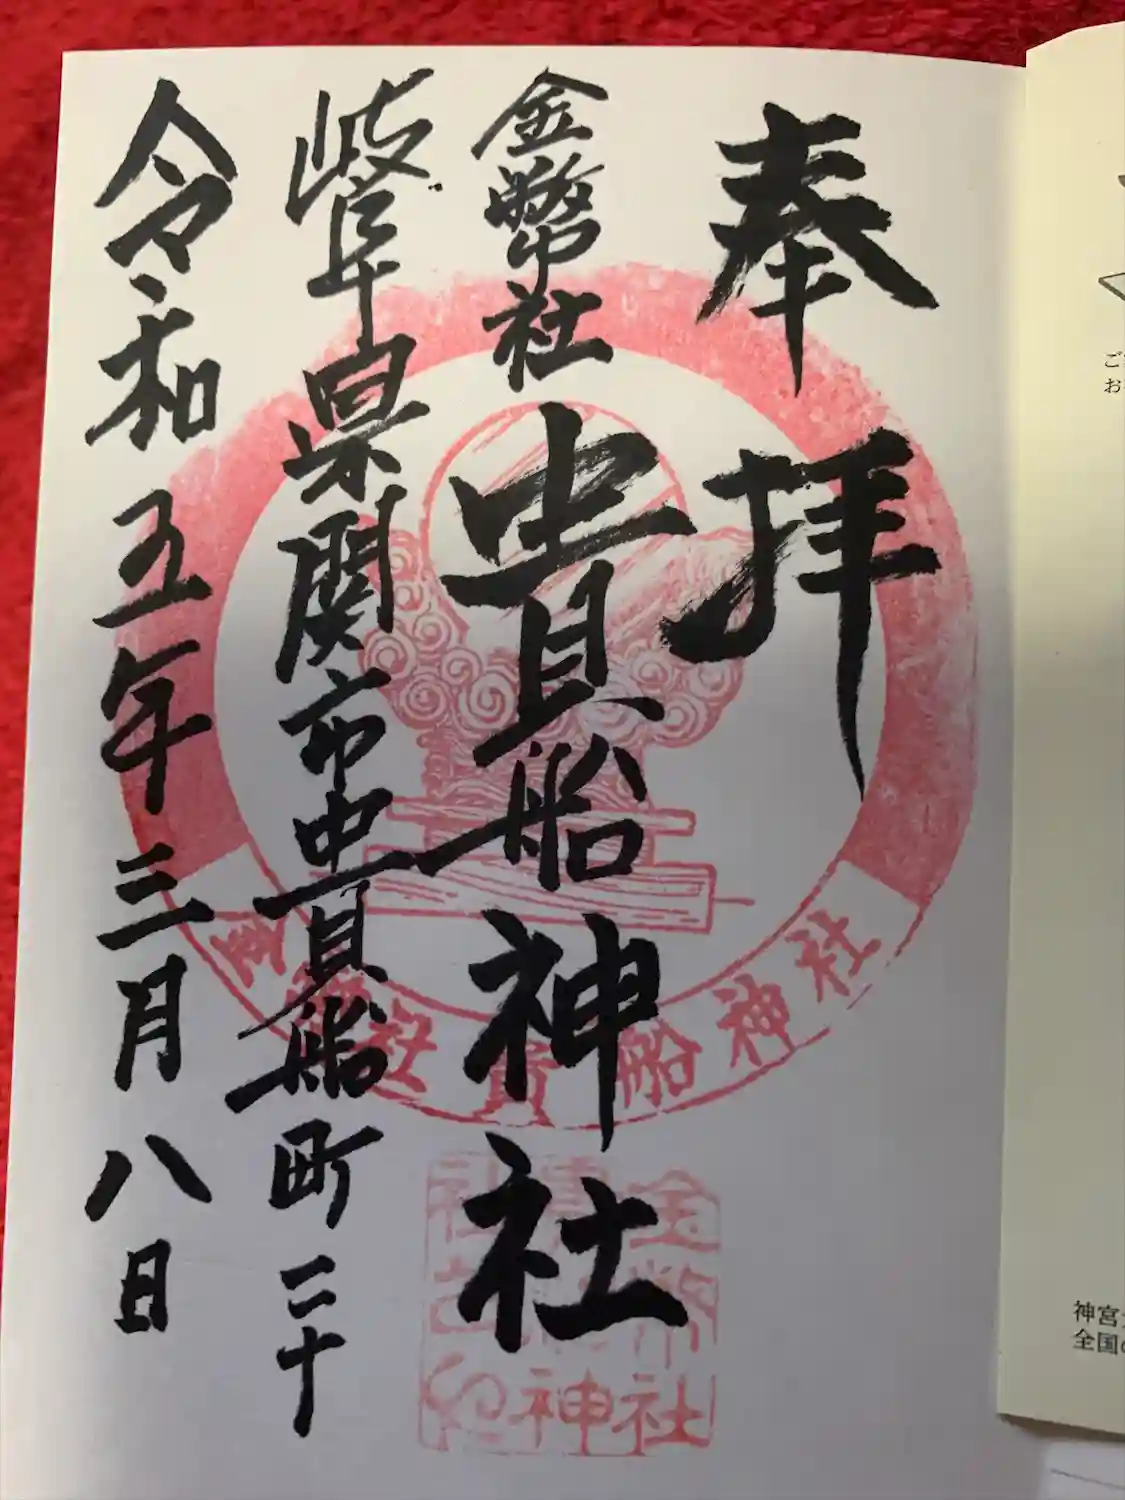 奉拝
金幣社
貴船神社
岐阜県関市貴船町二十
令和五年三月八日
金幣社貴船神社
金幣社
神社
ご
お
神宮
全国の